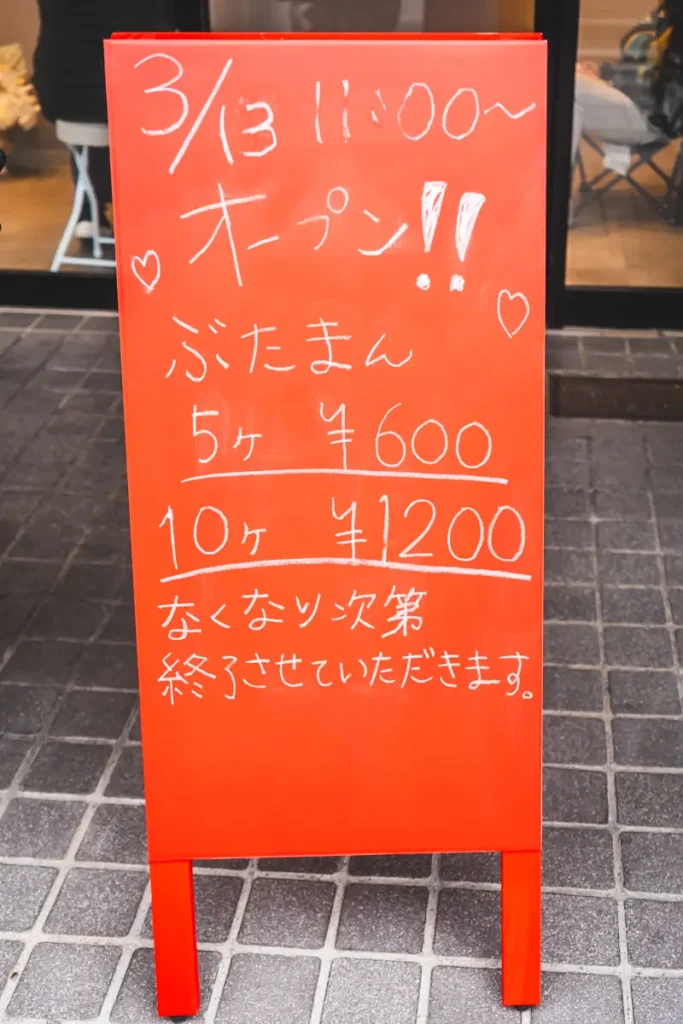 3/13 11:00〜
オープン!!
ぶたまん
5ヶ ¥600
10ヶ ¥1200
なくなり次第
終了させていただきます。